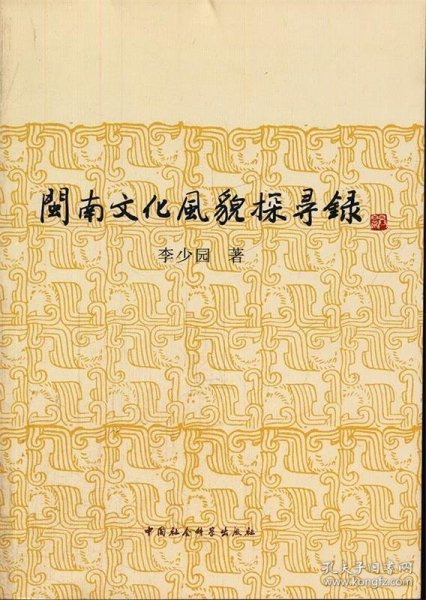 閩南文化風貌探尋録
李少园 著
中国社会科学出版社
孔夫子旧书网
www.kongfz.com